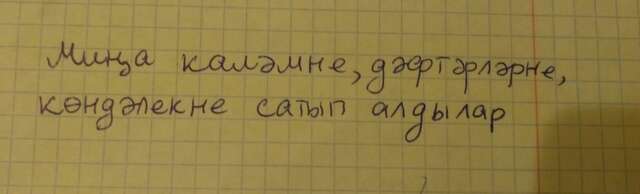 Миңа каләмне, дәфтәрләрне,
көндәлекне сатып алдылар